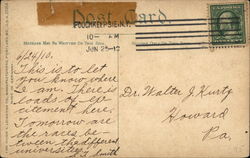 Post Card
POUGHKEEPSIE, N.Y.
10 - M
JUN 25-10
MESSAGE MAY BE WRITTEN ON THIS SIDE.
6/24/10.
This is to let
you know where
I am. There is
loads of ex-
citement here.
Tomorrow are
the races be-
tween the different
universities.
Smith
Dr. Walter J. Kurtz
Howard
Pa.